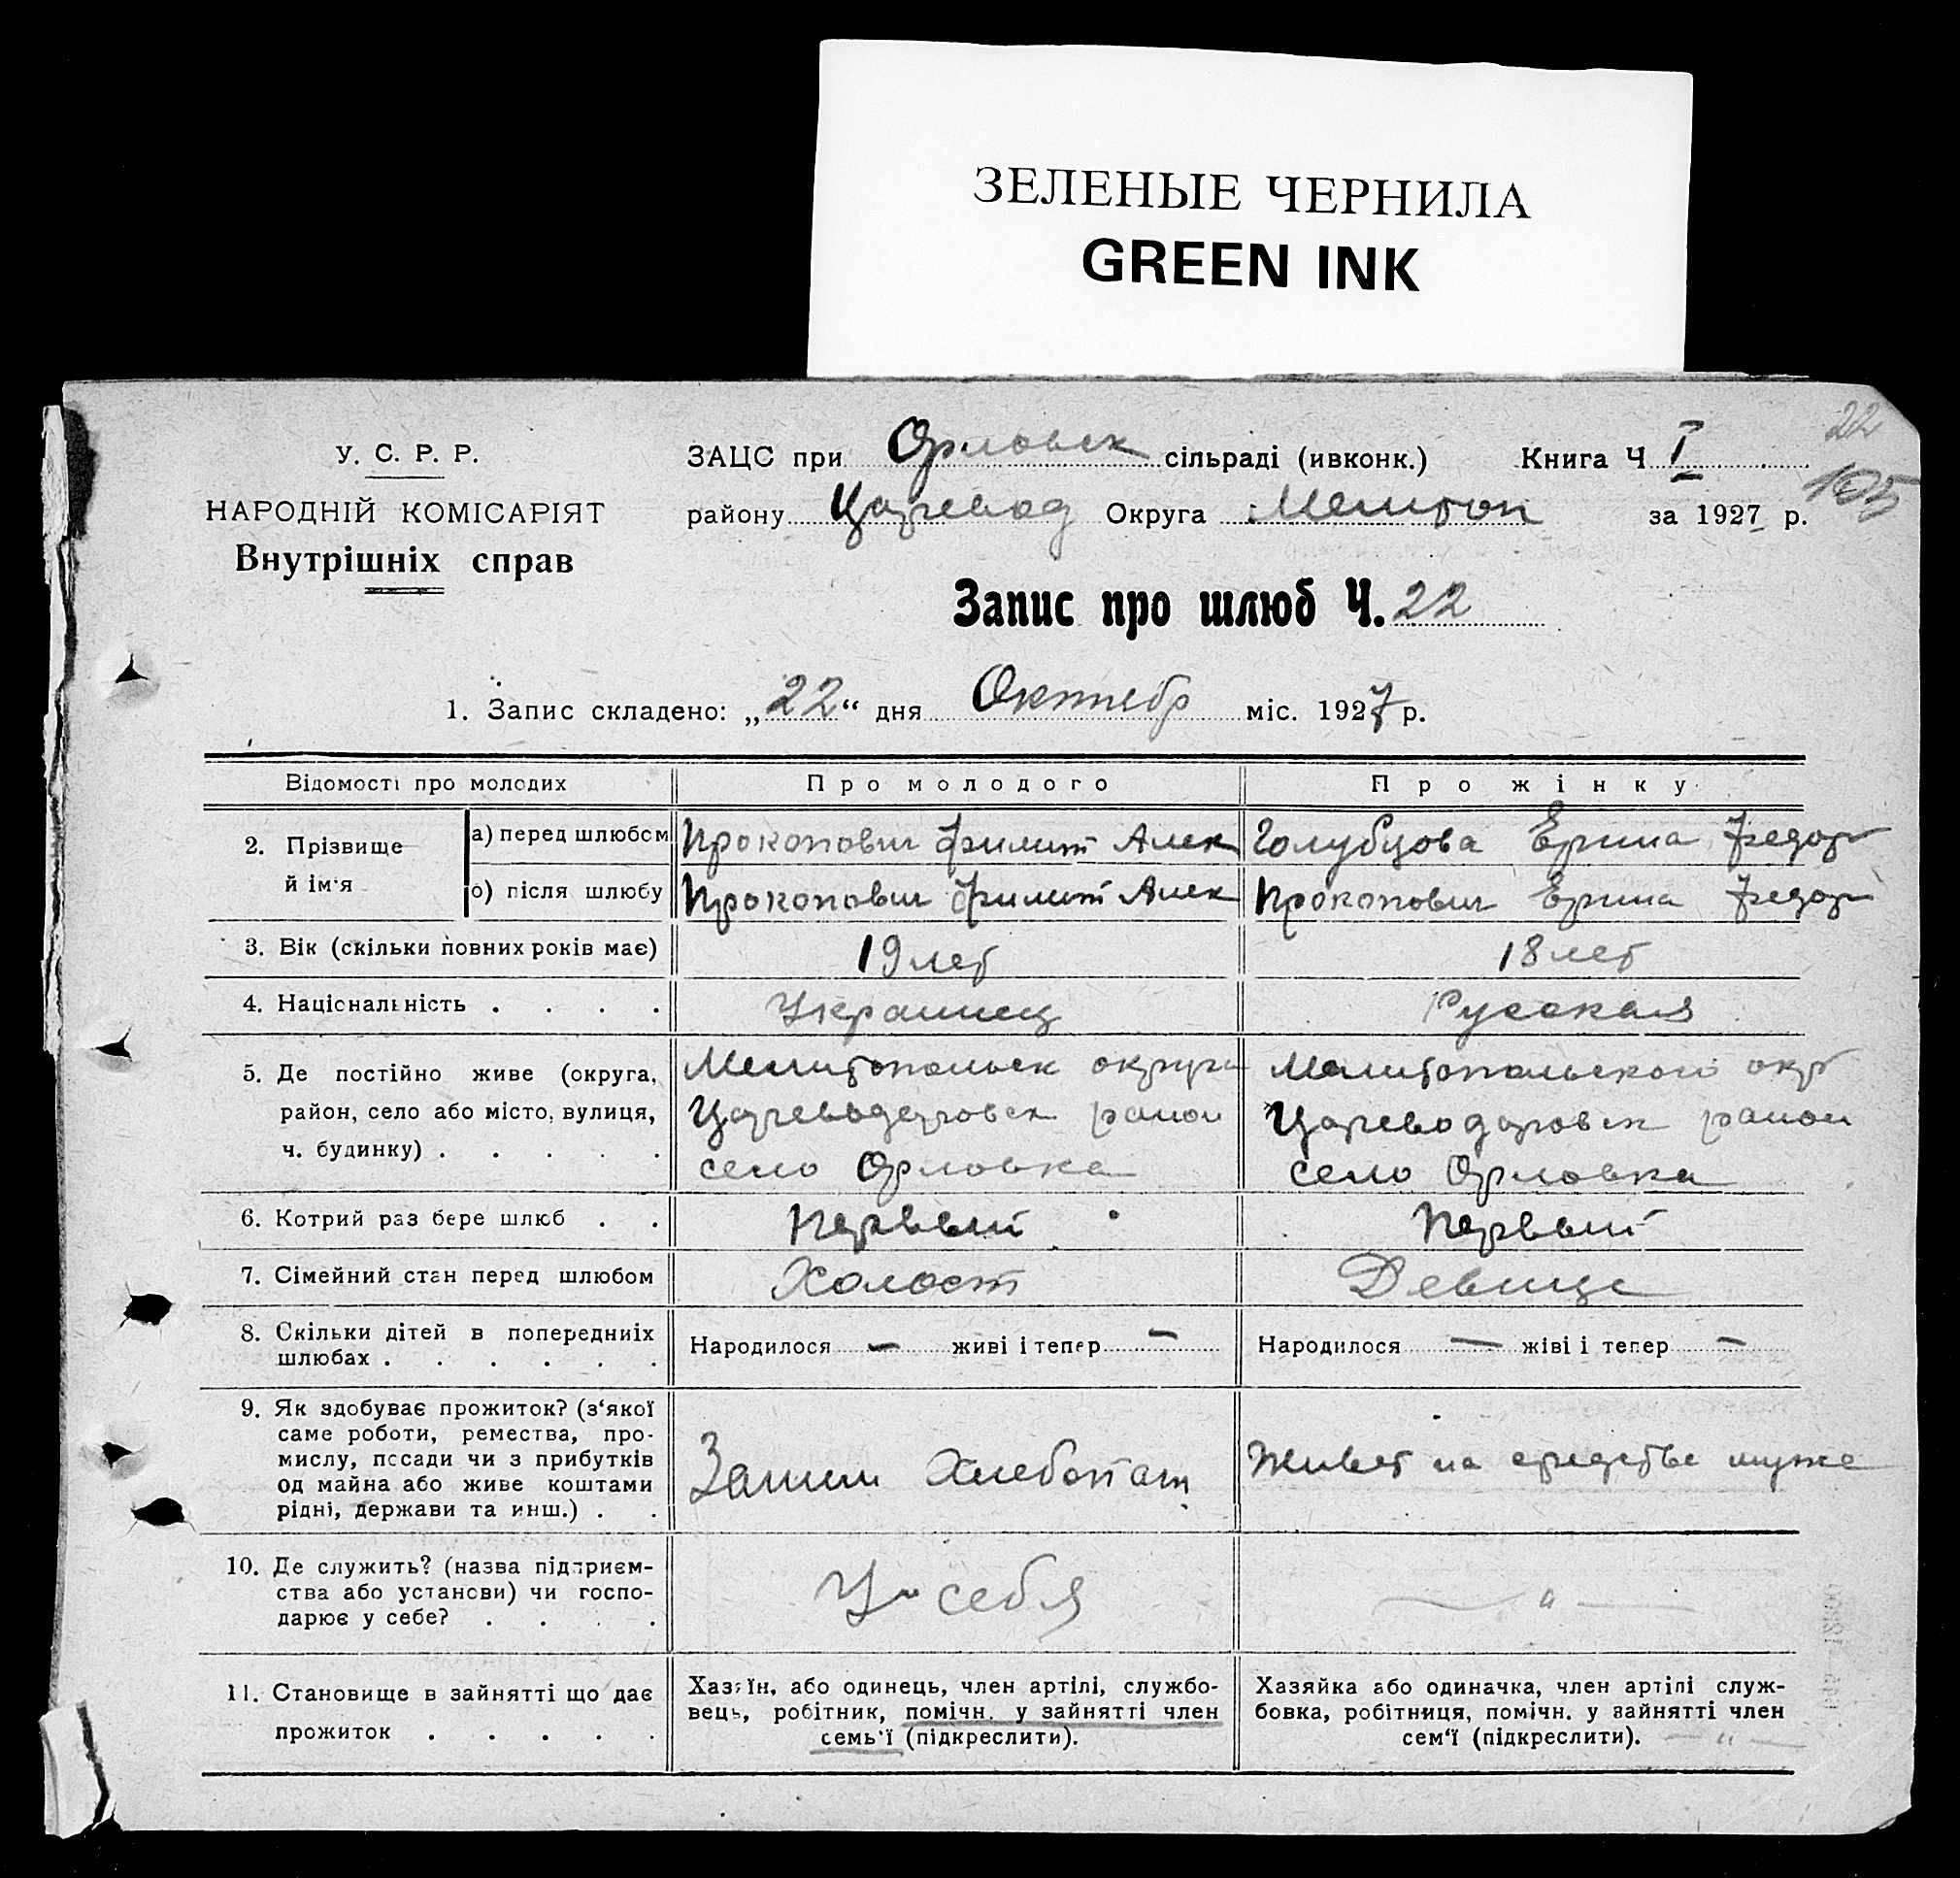 ЗЕЛЕНЫЕ ЧЕРНИЛА
GREEN INK
22
105
У. С. Р. Р.
НАРОДНІЙ КОМІСАРІЯТ
Внутрішніх справ
ЗАЦС при Орловск сільраді (ивконк.) Книга Ч I
району Царевод Округа Мелитоп за 1927 р.
Запис про шлюб Ч. 22
1. Запис складено: „22“ дня Октебр міс. 1927 р.
Відомості про молодих
Про молодого
Про жінку
2. Прізвище й ім'я
а) перед шлюбом
Прокопович Филип Алек
Голубцова Ерина Федор
б) після шлюбу
Прокопович Филип Алек
Прокопович Ерина Федор
3. Вік (скільки повних років має)
19 лет
18 лет
4. Національність . . . .
Украинец
Русская
5. Де постійно живе (округа,
район, село або місто, вулиця,
ч. будинку) . . . . .
Мелитопольск округа
Цареводаровск район
село Орловка
Мелитопольского окр
Цареводаровск район
село Орловка
6. Котрий раз бере шлюб . .
Первый
Первый
7. Сімейний стан перед шлюбом
Холост
Девица
8. Скільки дітей в попередниіх
шлюбах . . . . . .
Народилося — живі і тепер —
Народилося — жіві і тепер —
9. Як здобуває прожиток? (з‘якої
саме роботи, ремества, про-
мислу, посади чи з прибутків
од майна або живе коштами
рідні, держави та инш.) . .
Хлебопаш
Живет на средстве мужа
10. Де служить? (назва підприєм-
ства або установи) чи госпо-
дарює у себе? . . . .
У себя
— " —
11. Становище в зайнятті що дає
прожиток . . . . .
Хазяїн, або одинець, член артілі, службо-
вець, робітник, помічн. у зайнятті член
семь'ї (підкреслити).
Хазяйка або одиначка, член артілі служ-
бовка, робітниця, помічн. у зайнятті член
сем‘ї (підкреслити). — " —